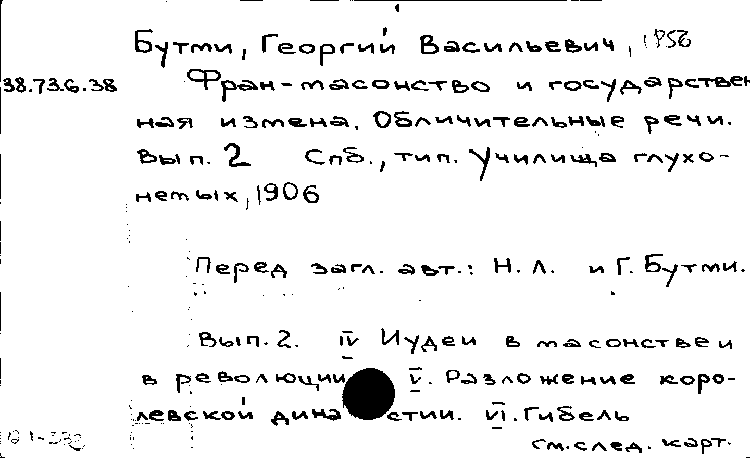 Бутми, Георгий Васильевич, 1856
38.73.6.38 Фран-масонство и государствен
ная измена. Обличительные речи.
Вып. 2 Спб., тип. Училища глухо-
немых, 1906
Перед загл. авт.: Н.Л. и Г. Бутми.
Вып. 2. IV Иудеи в масонстве и
в революции V. Разложение коро-
левской династии. VI. Гибель
см. след. карт.